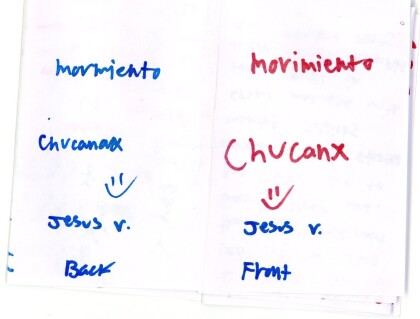 mormiento
Chucanax
Jesus v.
Back
morimiento
Chucanx
Jesus v.
Front